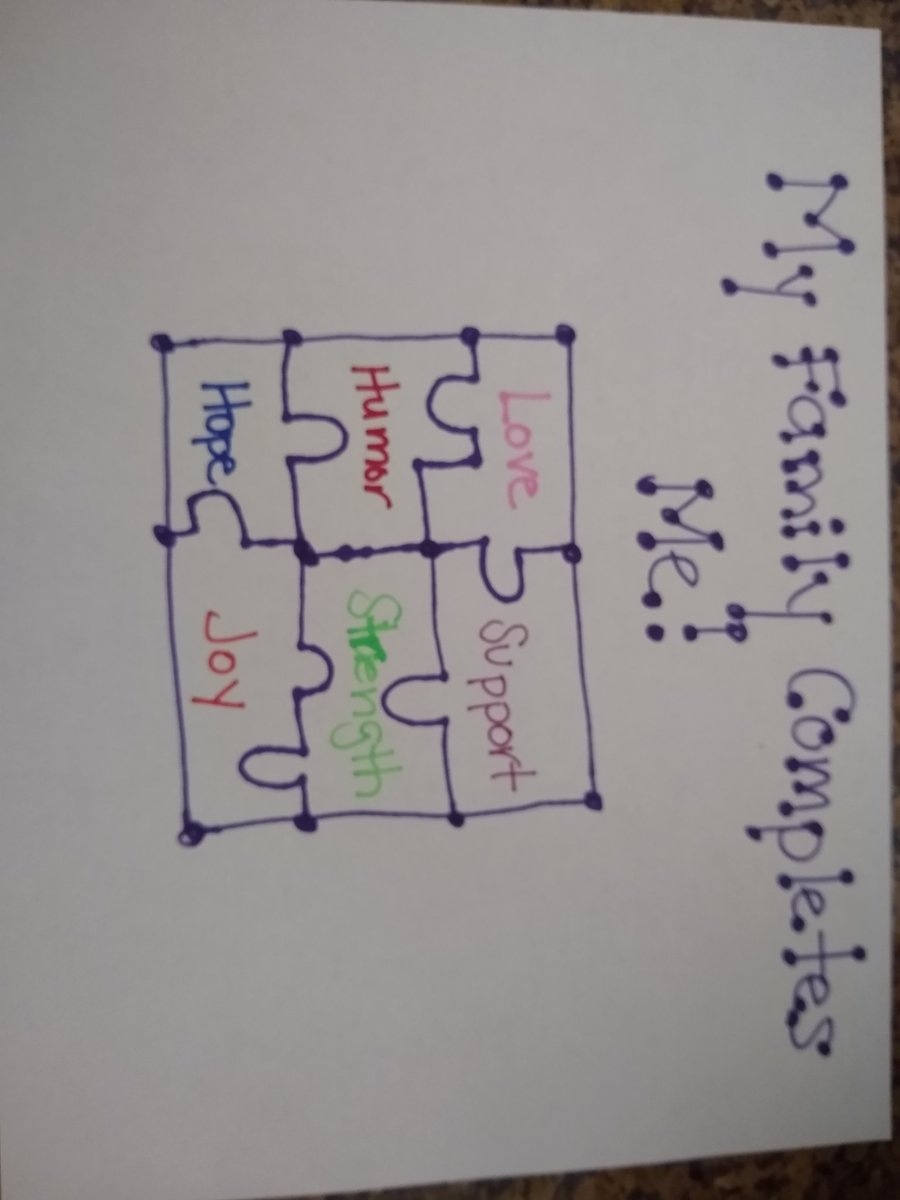 My Family Completes
Me!
Love Support
Humor Strength
Hope Joy